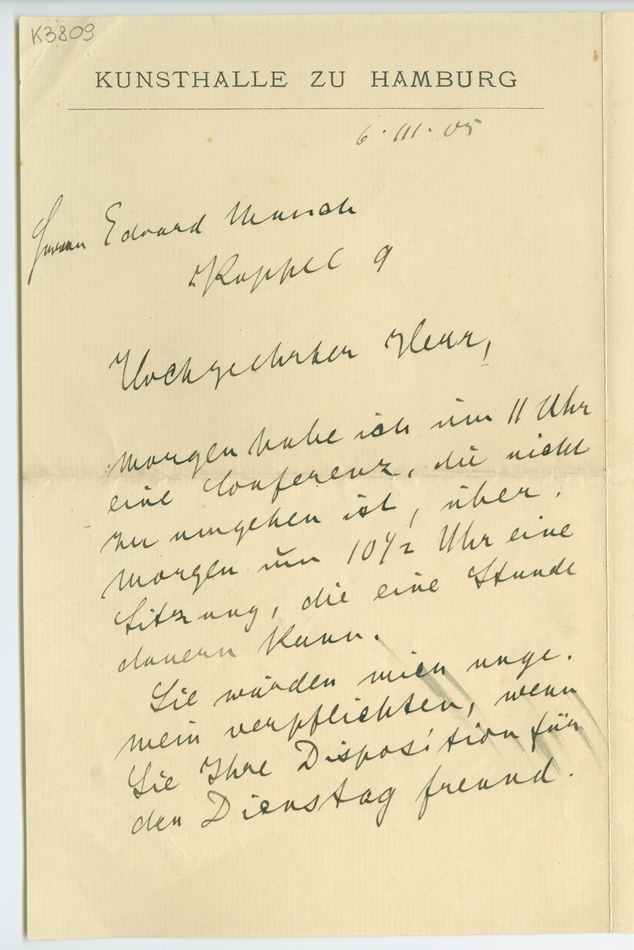 K3809
KUNSTHALLE ZU HAMBURG
6. III. 05
Herrn Edvard Munch
Koppel 9
Hochgeehrter Herr,
morgen habe ich um 11 Uhr
eine Conferenz, die nicht
zu umgehen ist, über-
morgen um 10 1/2 Uhr eine
Sitzung, die eine Stunde
dauern kann.
Sie würden mich unge-
mein verpflichten, wenn
Sie Ihre Disposition für
den Dienstag freund-